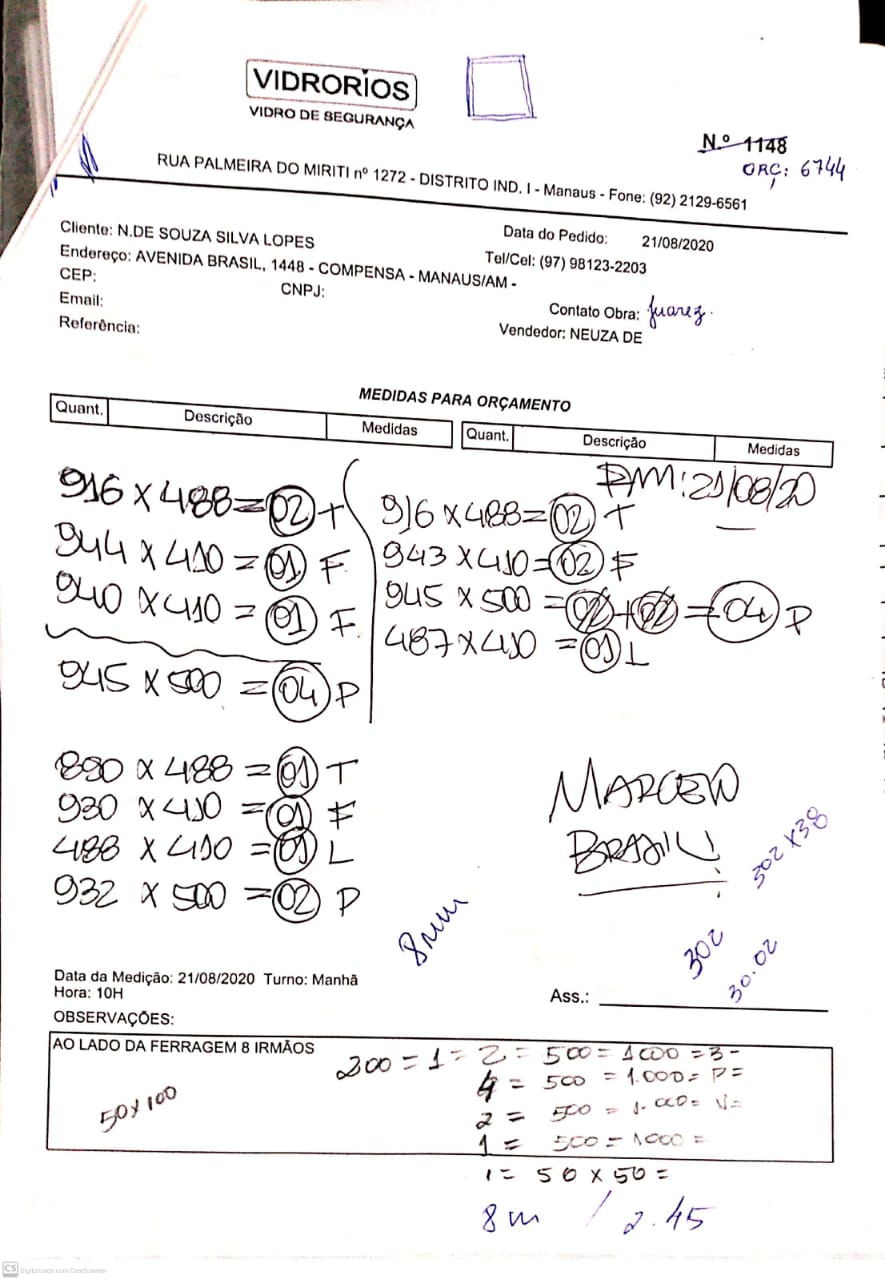 VIDRORIOS
VIDRO DE SEGURANÇA
N.º 1148
ORÇ: 6744
RUA PALMEIRA DO MIRITI nº 1272 - DISTRITO IND. I - Manaus - Fone: (92) 2129-6561
Cliente: N.DE SOUZA SILVA LOPES
Data do Pedido: 21/08/2020
Endereço: AVENIDA BRASIL, 1448 - COMPENSA - MANAUS/AM -
Tel/Cel: (97) 98123-2203
CEP:
CNPJ:
Email:
Contato Obra: Juarez.
Referência:
Vendedor: NEUZA DE
MEDIDAS PARA ORÇAMENTO
Quant. Descrição Medidas Quant. Descrição Medidas
P/M: 21/08/20
916 X 488 = 02 T
944 X 410 = 01 F
940 X 410 = 01 F
945 X 500 = 04 P
916 X 488 = 02 T
943 X 410 = 02 F
945 X 500 = 02 + 02 = 04 P
487 X 410 = 01 L
890 X 488 = 01 T
930 X 410 = 01 F
488 X 410 = 01 L
932 X 500 = 02 P
BRASIL!
302 X 38
8mm
302
30.02
Data da Medição: 21/08/2020 Turno: Manhã
Hora: 10H
Ass.:
OBSERVAÇÕES:
AO LADO DA FERRAGEM 8 IRMÃOS
50 x 100
200 = 1 = 2 = 500 = 1000 = 3 -
4 = 500 = 1.000 = P =
2 = 500 = 1.000 = V =
1 = 500 = 1000 =
1 = 50 X 50 =
8 m / 2.45
CS Digitalizado com CamScanner